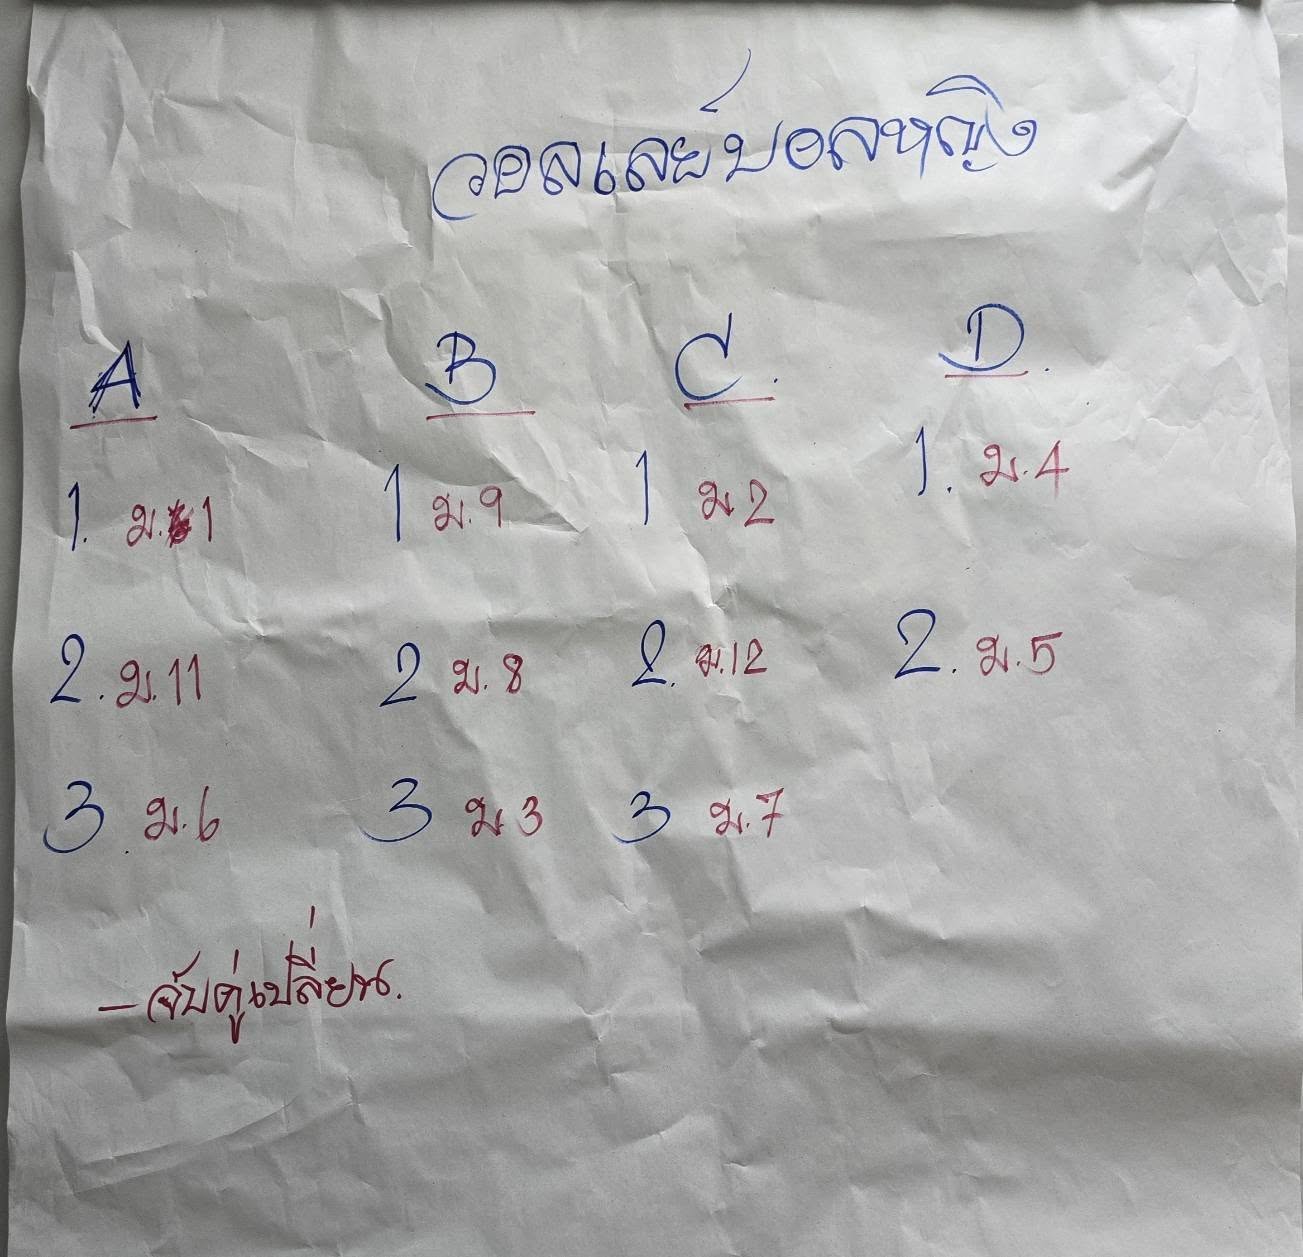 วอลเลย์บอลหญิง
A B C. D.
1. ม.1 1 ม.9 1 ม2 1. ม.4
2. ม.11 2 ม.8 2. ม.12 2. ม.5
3. ม.6 3 ม3 3 ม.7
- จับคู่เปลี่ยน.